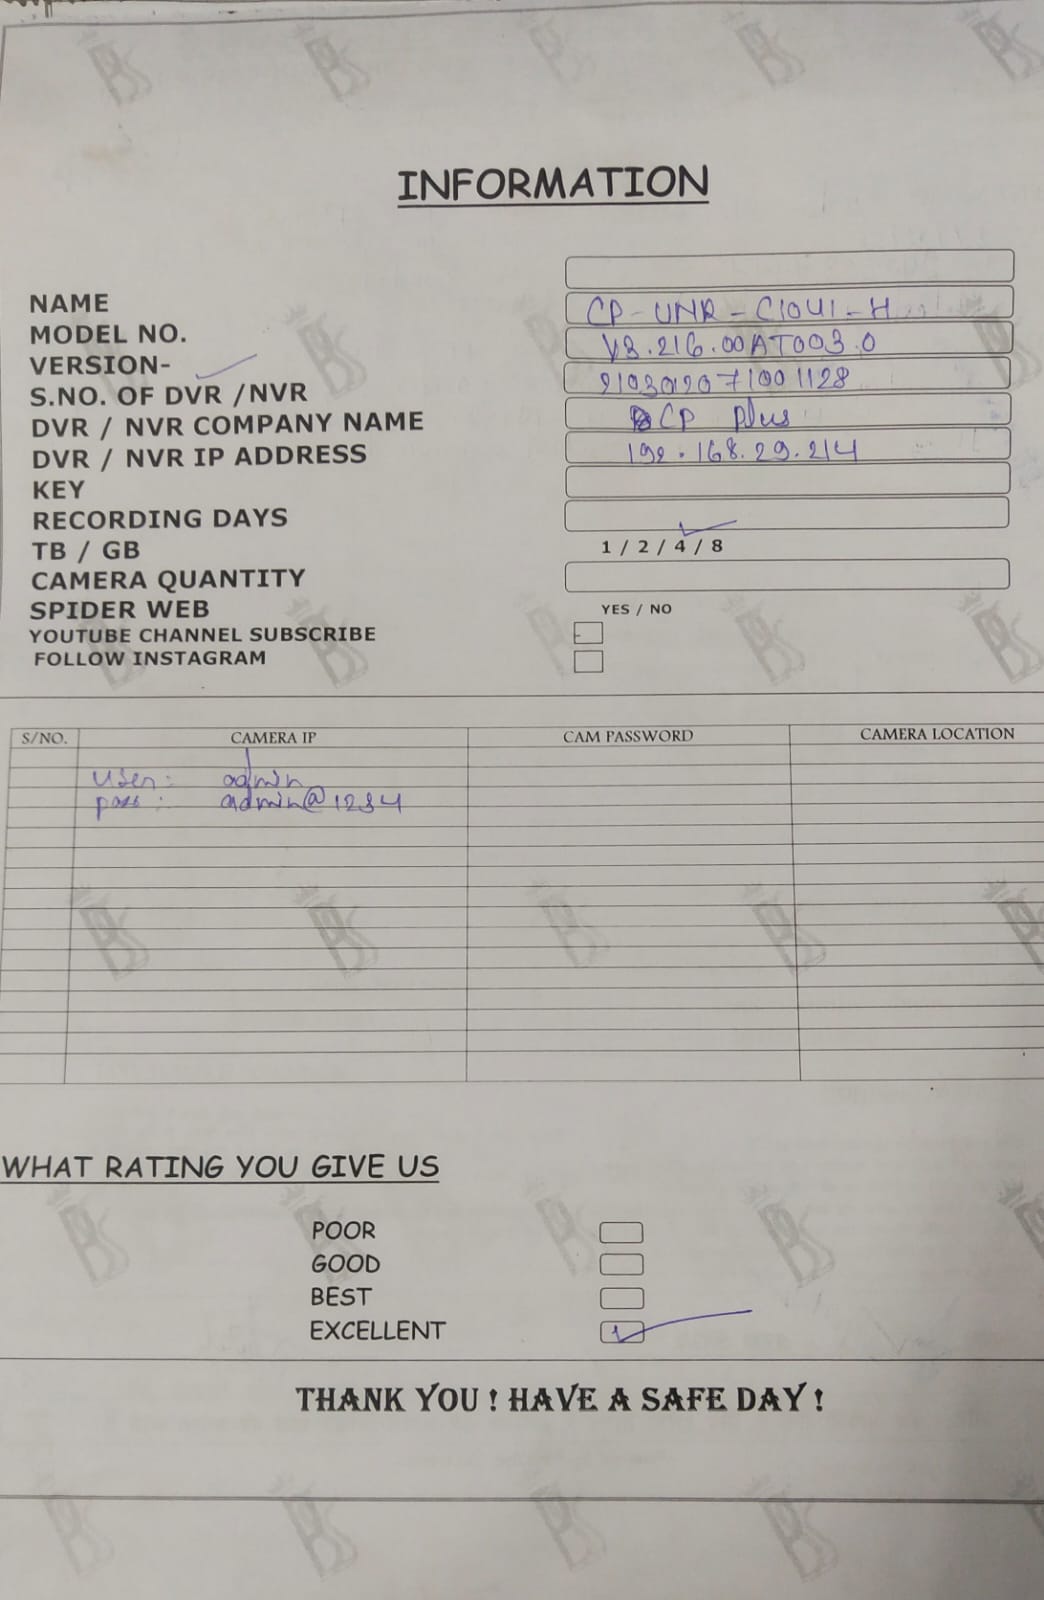 INFORMATION
NAME
MODEL NO. CP-UNR-C1041-H
VERSION- V3.216.00AT003.0
S.NO. OF DVR /NVR 2103012071001128
DVR / NVR COMPANY NAME CP Plus
DVR / NVR IP ADDRESS 192.168.29.214
KEY
RECORDING DAYS
TB / GB 1 / 2 / 4 / 8
CAMERA QUANTITY
SPIDER WEB YES / NO
YOUTUBE CHANNEL SUBSCRIBE
FOLLOW INSTAGRAM
S/NO. CAMERA IP CAM PASSWORD CAMERA LOCATION
user: admin
pass: admin@1234
WHAT RATING YOU GIVE US
POOR
GOOD
BEST
EXCELLENT
THANK YOU ! HAVE A SAFE DAY !